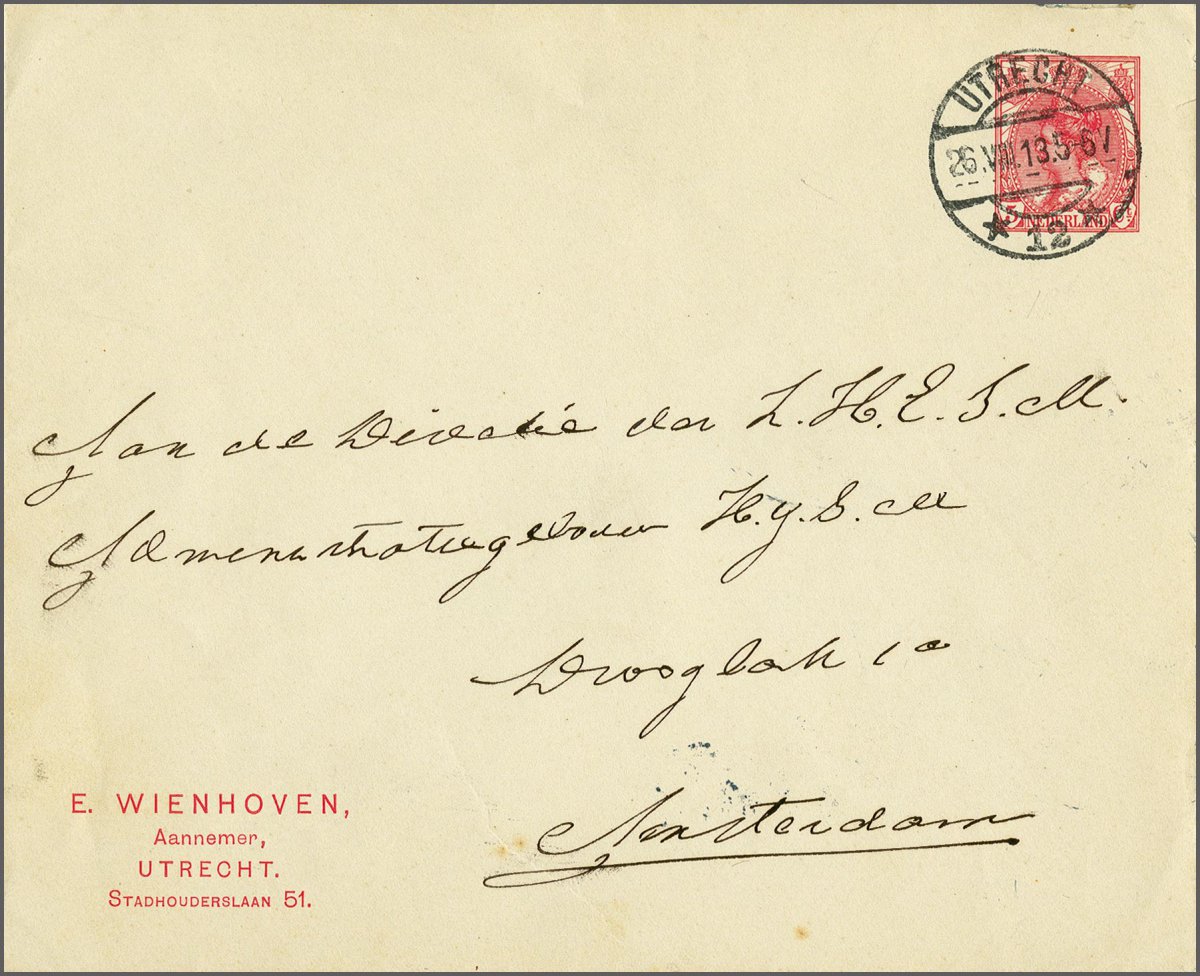 UTRECHT
26.VIII.13.5-6V
* 12 *
5 NEDERLAND Ct
Aan de Directie der L.H.E.S.M.
Administratiegebouw H.y.S.M
Droogbak 1a
Amsterdam
E. WIENHOVEN,
Aannemer,
UTRECHT.
STADHOUDERSLAAN 51.